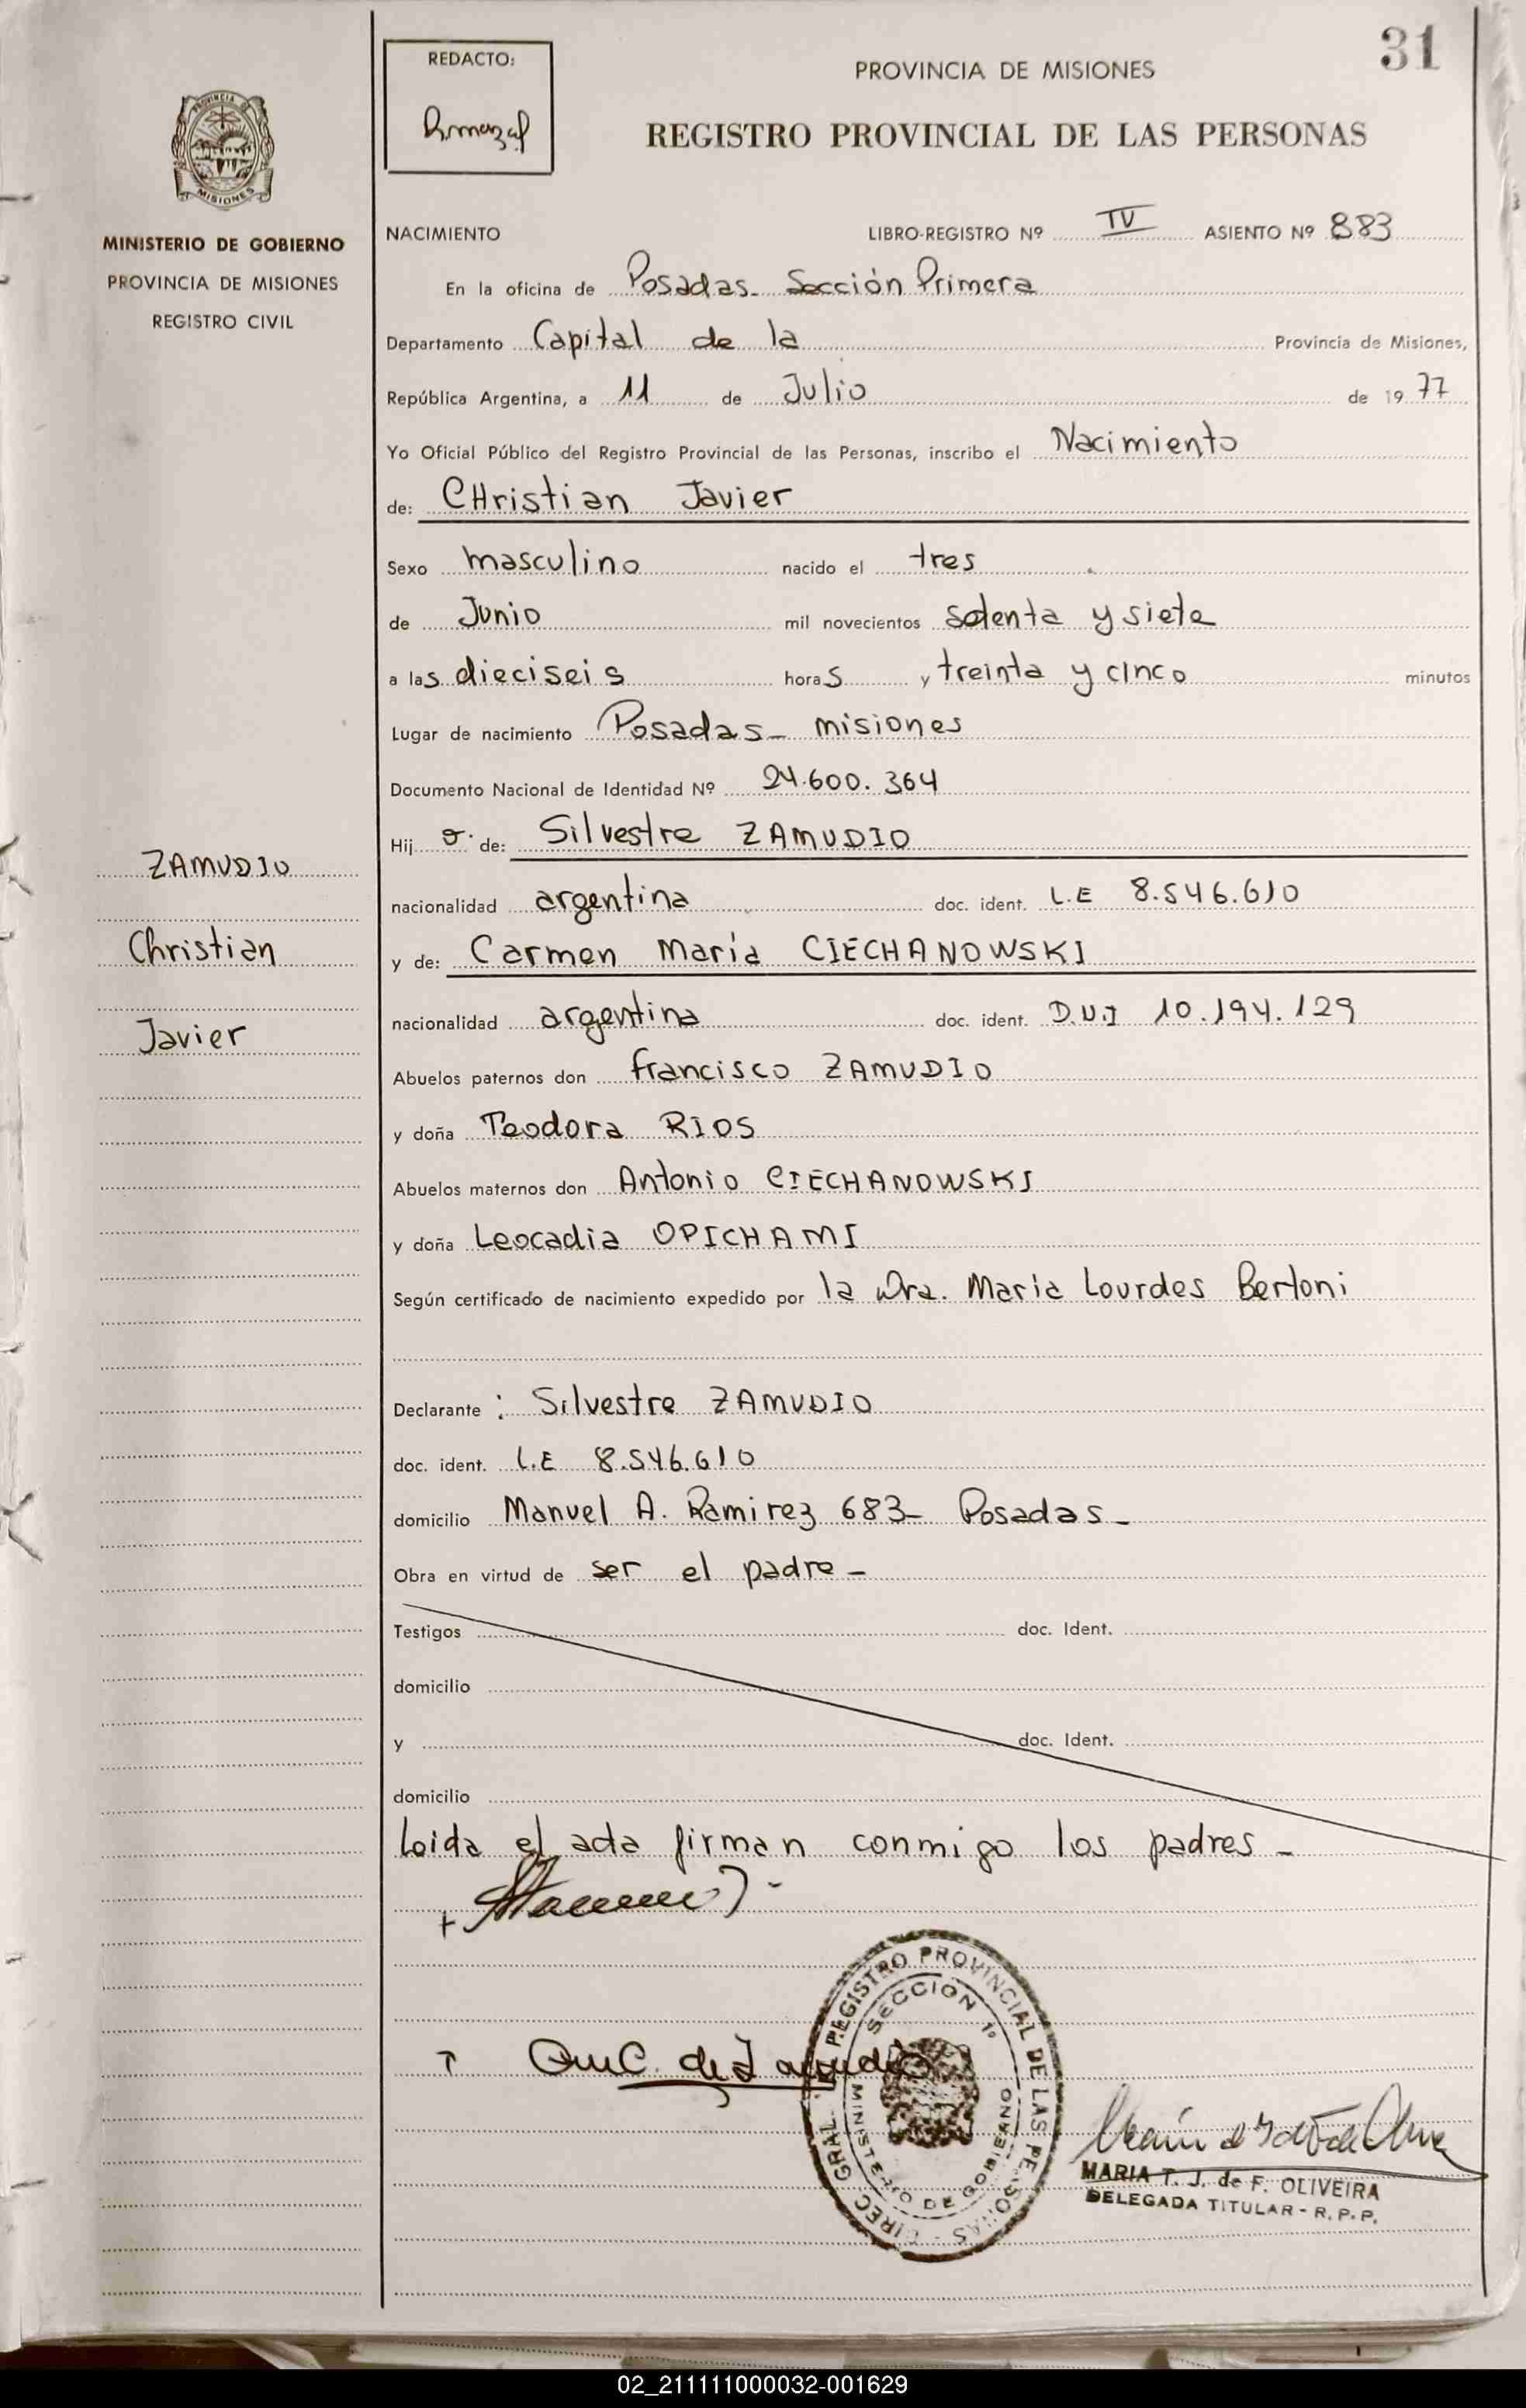 31
REDACTO:
PROVINCIA DE MISIONES
REGISTRO PROVINCIAL DE LAS PERSONAS
PROVINCIA DE
MISIONES
MINISTERIO DE GOBIERNO
PROVINCIA DE MISIONES
REGISTRO CIVIL
NACIMIENTO LIBRO-REGISTRO Nº IV ASIENTO Nº 883
En la oficina de Posadas_ Sección Primera
Departamento Capital de la Provincia de Misiones,
República Argentina, a 11 de Julio de 1977
Yo Oficial Público del Registro Provincial de las Personas, inscribo el Nacimiento
de: CHristian Javier
Sexo masculino nacido el tres
de Junio mil novecientos setenta y siete
a las dieciseis horas y treinta y cinco minutos
Lugar de nacimiento Posadas_ misiones
Documento Nacional de Identidad Nº 24.600.364
Hijo de: Silvestre ZAMUDIO
nacionalidad argentina doc. ident. L.E 8.546.610
y de: Carmen María CIECHANOWSKI
nacionalidad argentina doc. ident. D.U.I 10.194.129
Abuelos paternos don francisco ZAMUDIO
y doña Teodora RIOS
Abuelos maternos don Antonio CIECHANOWSKI
y doña Leocadia OPICHAMI
Según certificado de nacimiento expedido por la Dra. María Lourdes Bertoni
Declarante : Silvestre ZAMUDIO
doc. ident. L.E 8.546.610
domicilio Manuel A. Ramirez 683_ Posadas_
Obra en virtud de ser el padre_
Testigos doc. Ident.
domicilio
y doc. Ident.
domicilio
Leida el acta firman conmigo los padres_
ZAMUDIO
Christian
Javier
DIREC GRAL. REGISTRO PROVINCIAL DE LAS PERSONAS
SECCION 1º
MINISTERIO DE GOBIERNO
MARIA T. J. de F. OLIVEIRA
DELEGADA TITULAR - R. P. P.
02_211111000032-001629